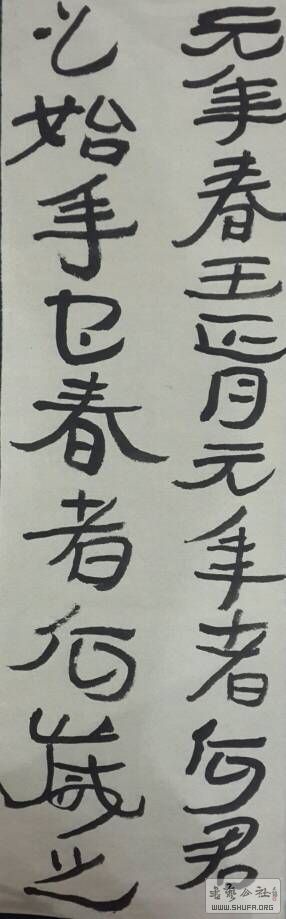 元年春王正月元年者何君
之始年也春者何歲之
書藝公社
WWW.SHUFA.ORG